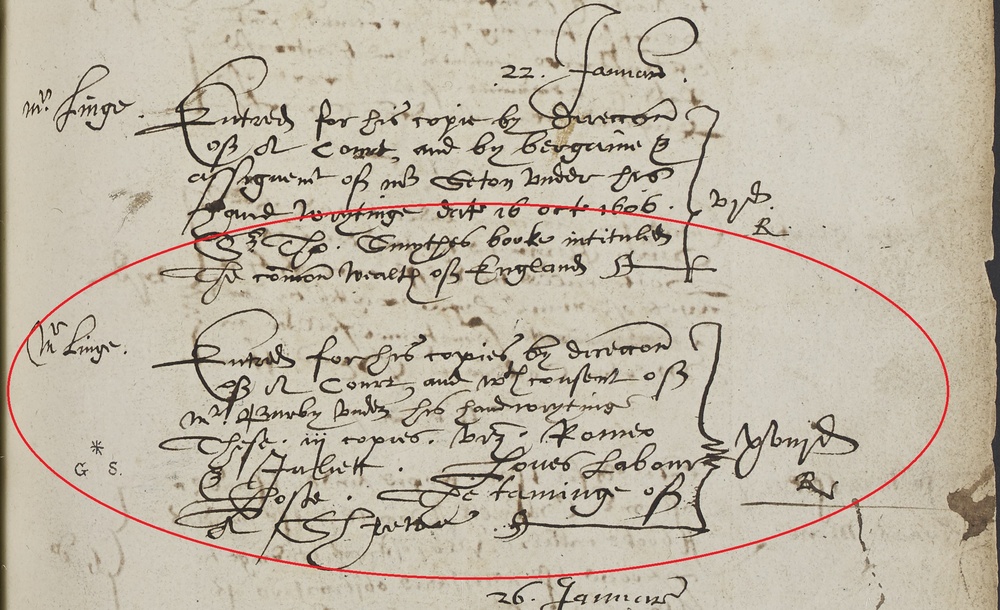 22. Januarii
mr. Linge.
Entred for his copie by direccon
of A Court, and by bargaine &
assignemt of mr Seton under his
hand wrytinge date 16 octr 1606.
Sr Tho. Smythes booke intituled
The comon wealth of England
vjd.
R
mr Linge.
Entred for his copies by direccon
of A Court, and wth consent of
mr. Burby under his handwryting
These. iij copies. viz. Romeo
& Juliett. Loues Labour
Loste. The taminge of
A Shrewe
xviijd
R
*
G S.
26. Januarii